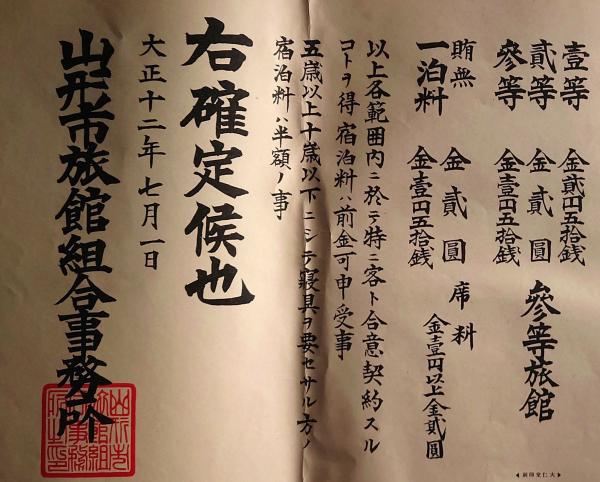 壹等 金貳円五拾銭
貳等 金貳圓
參等 金壹円五拾銭
參等旅館
賄無
一泊料 金貳圓
金壹円五拾銭
席料 金壹円以上金貳圓
以上各範囲内ニ於テ特ニ客ト合意契約スル
コトヲ得宿泊料ハ前金可申受事
五歳以上十歳以下ニシテ寝具ヲ要セサル方ノ
宿泊料ハ半額ノ事
右確定候也
大正十二年七月一日
山形市旅館組合事務所